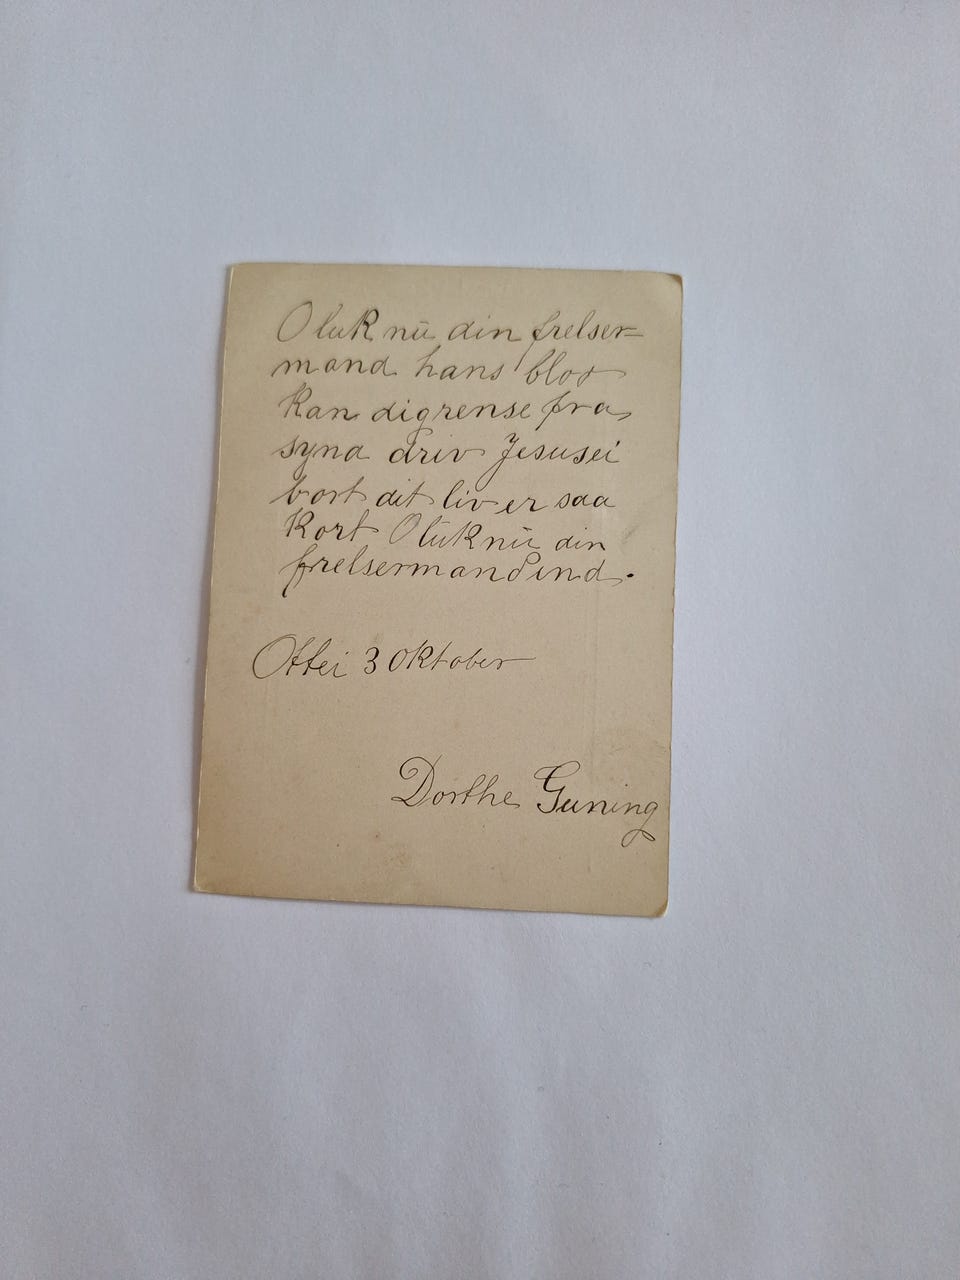 O luk nu din frelser=
mand hans blod
kan dig rense fra
synd driv Jesus ei
bort dit liv er saa
kort O luk nu din
frelsermand ind.
Ottei 3 Oktober
Dorthe Guning